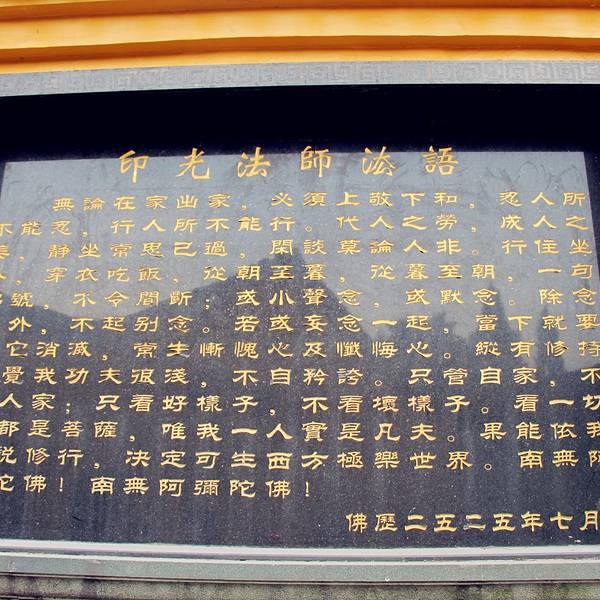 印光法師法語
無論在家出家，必須上敬下和，忍人所
不能忍，行人所不能行。代人之勞，成人之
美，静坐常思己過，閑談莫論人非。行住坐
，穿衣吃飯，從朝至暮，從暮至朝，一句
號，不令間斷；或小聲念，或默念。除念
外，不起别念。若或妄念一起，當下就要
它消滅，常生慚愧心及懺悔心。縱有修持
覺我功夫很浅，不自矜誇。只管自家，不
人家；只看好樣子，不看壞樣子。看一切
都是菩薩，唯我一人實是凡夫。果能依我
説修行，决定可生西方極樂世界。南無阿
陀佛！南無阿彌陀佛！
佛歷二五二五年七月